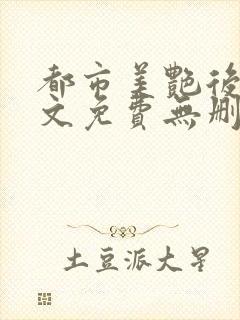 都市美艷後
文免費無刪
土豆派大星